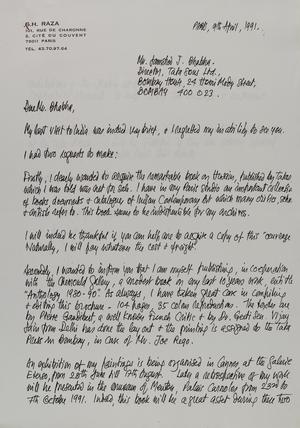 S.H. RAZA
101, RUE DE CHARONNE
5, CITÉ DU COUVENT
75011 PARIS
TEL. 43.70.97.64
PARIS, 9th April, 1991.
Mr. Jamshed J. Bhabha.
Director, Tata Sons Ltd.,
Bombay House, 24 Homi Mody Street,
BOMBAY 400 023.
Dear Mr. Bhabha,
My last visit to India was indeed very brief, & I regretted my inability to see you.
I had two requests to make:
Firstly, I clearly wanted to acquire the remarkable book on Husain, published by Tatas
which I was told was not for sale. I have in my Paris studio an important collection
of books documents & catalogues of Indian Contemporary Art which many critics,
artists refer to. This book seems to be indispensible for my archives.
I will indeed be thankful if you can help me to acquire a copy of this
Naturally, I will pay whatever the cost & freight.
Secondly, I wanted to inform you that I am myself publishing, in cooperation
with the Chemould Gallery, a book on my last 10 years work, with the
"Anthology 1980-90". As always, I have taken great care in compiling
& editing this brochure - 104 pages, 35 colour reproductions. The texts are
by Pierre Gaudibert, a well known French Critic & by Dr. Geeti Sen. Vijay
Jain from Delhi has done the lay out & the printing is assigned to the Tata
Press in Bombay, in care of Mr. Joe Rego.
An exhibition of my paintings is being organised in Cannes, at the Galerie
from 28th June till 17th August. Lastly a retrospective of my work
will be presented in the museum of Menton, Palais Carnolès from 23rd to
7th October 1991. Indeed this book will be a great asset during these two